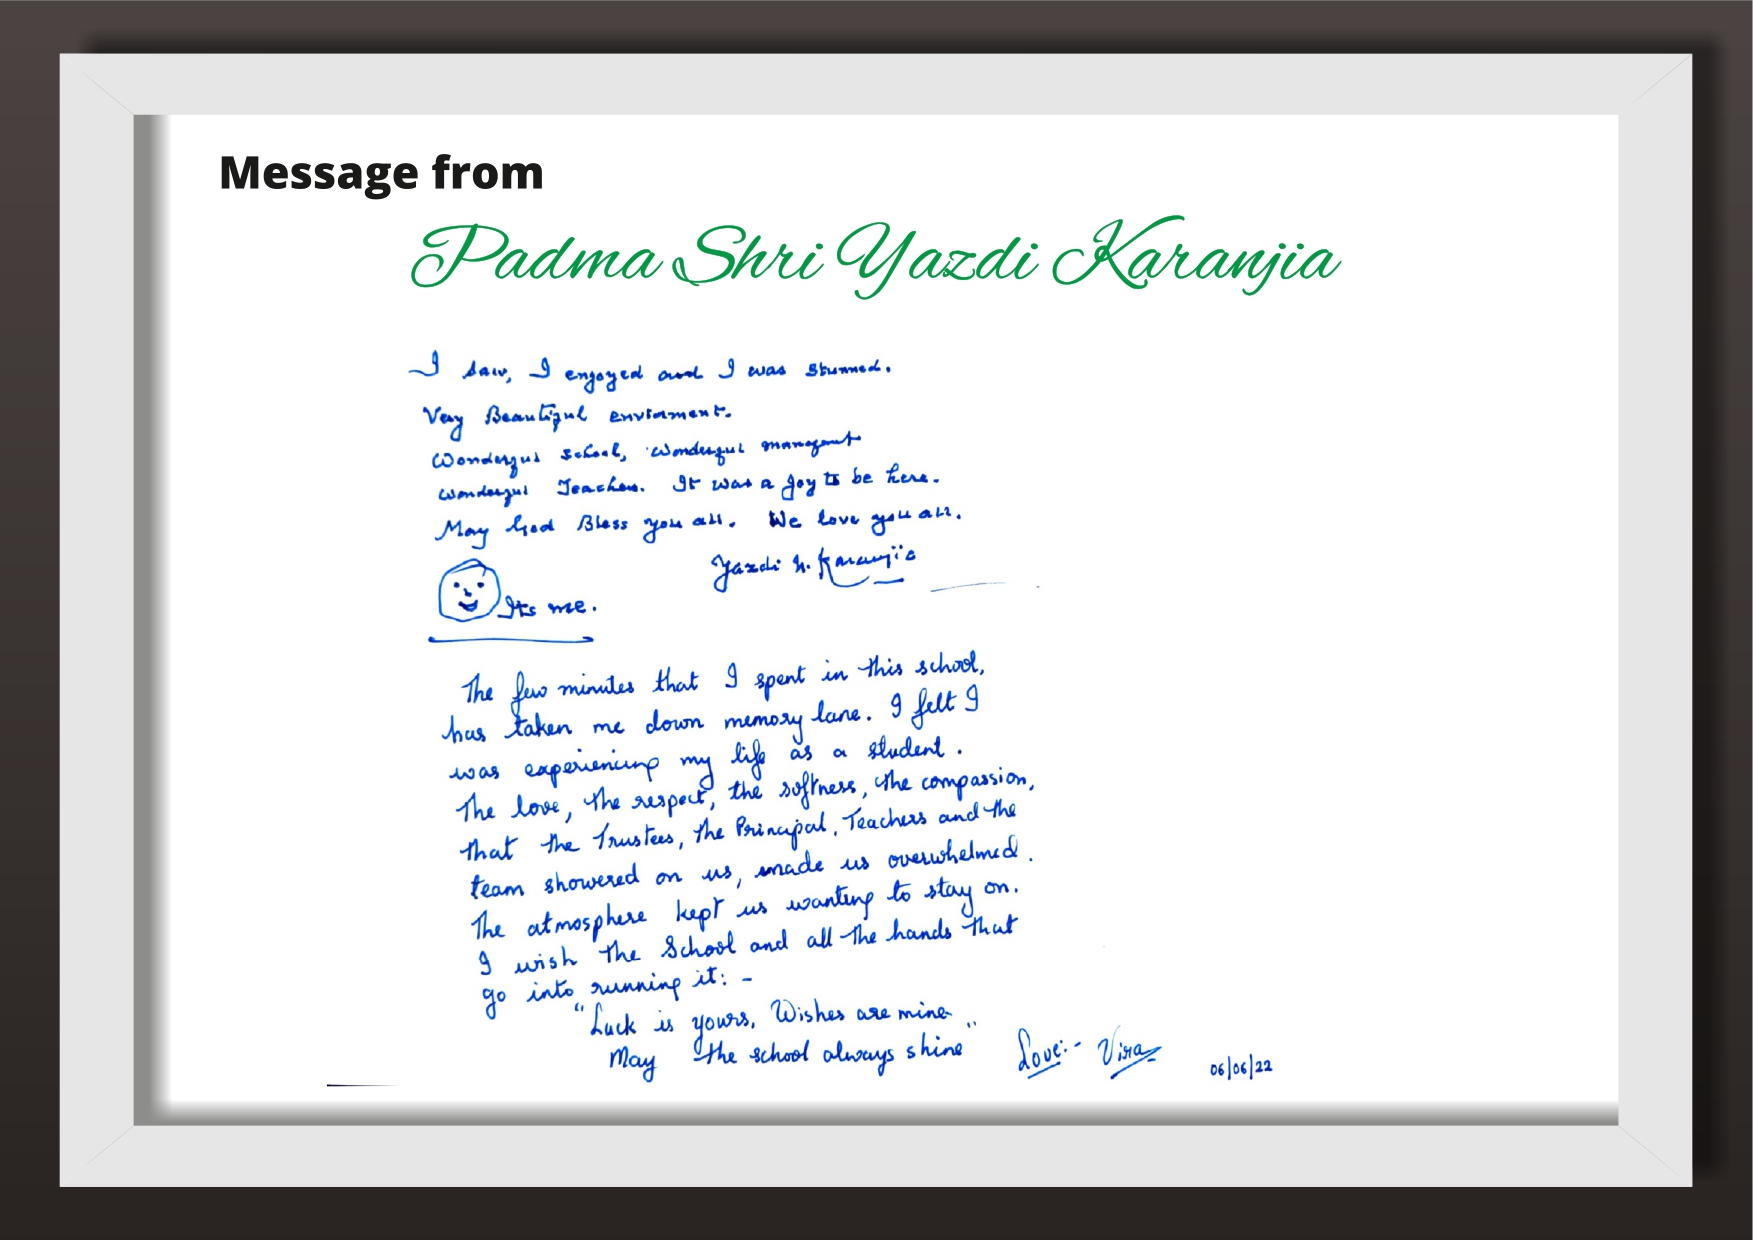 Message from
Padma Shri Yazdi Karanjia
I saw, I enjoyed and I was stunned.
Very Beautiful envirment.
Wonderful school, wonderful managent
wonderful Teachers. It was a joy to be here.
May God Bless you all. We love you all.
Yazdi N. Karanjia
Its me.
The few minutes that I spent in this school,
has taken me down memory lane. I felt I
was experiencing my life as a student.
The love, the respect, the softness, the compassion,
that the Trustees, the Principal, Teachers and the
team showered on us, made us overwhelmed.
The atmosphere kept us wanting to stay on.
I wish the School and all the hands that
go into running it: -
"Luck is yours, Wishes are mine
May the school always shine"
Love:- Vira
06/06/22